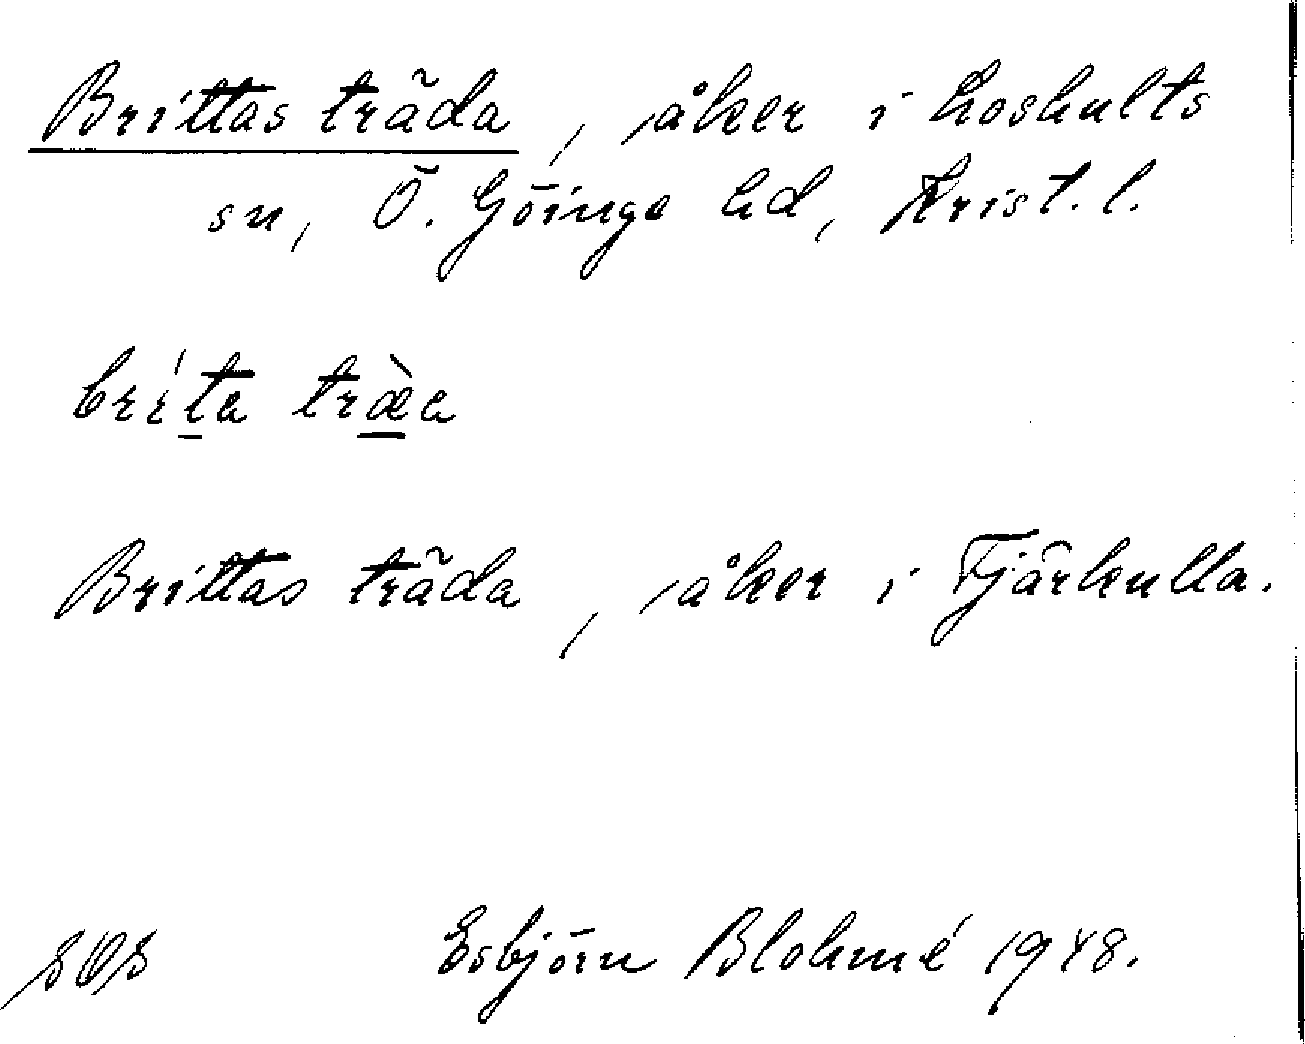 Brittas träda, åker i Loshults
sn, Ö. Göinge hd, Krist. l.
bríta træ̀a
Brittas träda, åker i Tjärkulla.
Esbjörn Blohmé 1948.